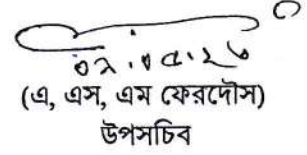 ০২.০৫.২৬
(এ, এস, এম ফেরদৌস)
উপসচিব